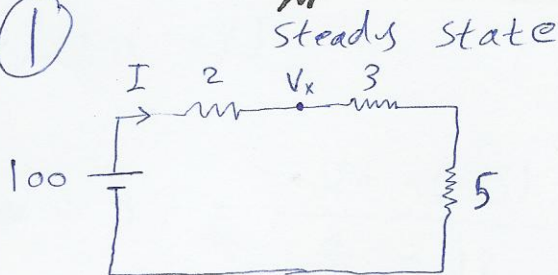 1
Steady State
I 2 Vx 3
100
5